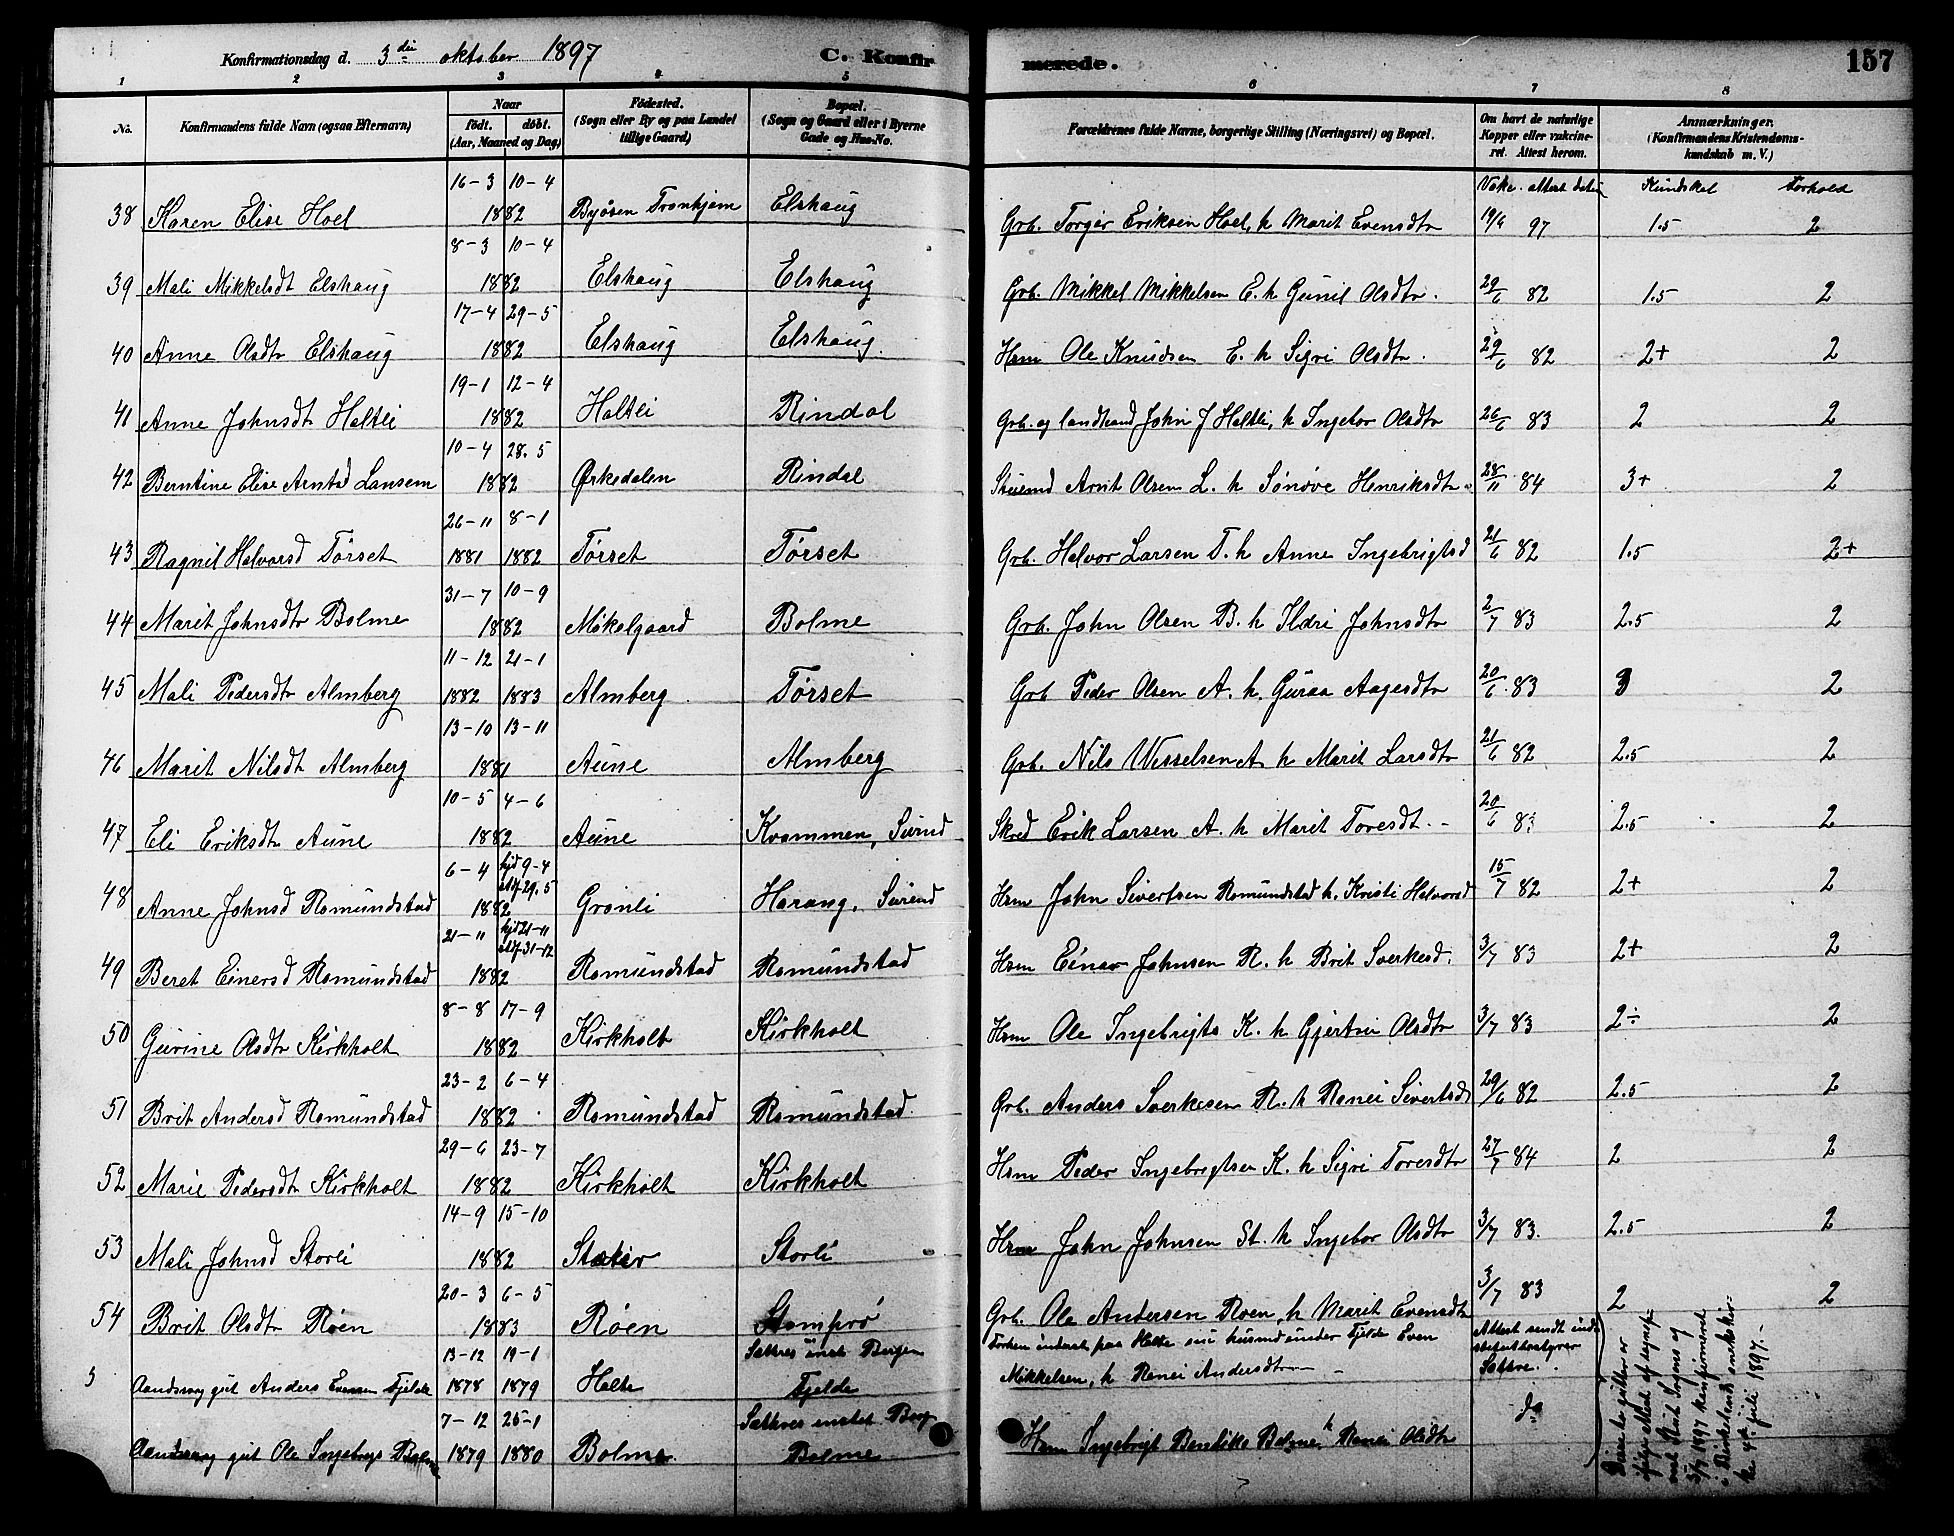 Konfirmationsdag d. 3die oktober 1897 C. Konfirmerede. 157
1 2 3 4 5 6 7 8
No. Konfirmandens fulde Navn (ogsaa Efternavn) Naar født. døbt. (Aar, Maaned og Dag) Fødested. (Sogn eller By og paa Landet tillige Gaard) Bopæl. (Sogn og Gaard eller i Byerne Gade og Hus-No. Forældrenes fulde Navne, borgerlige Stilling (Næringsvei) og Bopæl. Om havt de naturlige Kopper eller vakcineret. Attest herom. Anmærkninger. (Konfirmandens Kristendomskundskab m. V.)
Vakc. attest dato Kundskab Forhold
38 Karen Elise Hoel 16-3 10-4 1882 Byåsen Tronhjem Elshaug Grb. Torger Eriksen Hoel, h Marit Evensdtr 19/4 97 1.5 2
39 Mali Mikkelsdt Elshaug 8-3 10-4 1882 Elshaug Elshaug Grb. Mikkel Mikkelsen E. h Gunil Olsdtr. 29/6 82 1.5 2
40 Anne Olsdtr Elshaug 17-4 29-5 1882 Elshaug Elshaug. Hsm Ole Knudsen E. h Sigri Olsdtr. 29/6 82 2+ 2
41 Anne Johnsdt Haltli 19-1 12-4 1882 Haltli Rindal Grb. og landhand John J Haltli, h Ingebor Olsdtr 26/6 83 2 2
42 Berntine Elise Arntsd Lansem 10-4 28.5 1882 Ørkedalen Rindal Arnt Olsen L. h Sønøve Henriksdtr. 28/11 84 3+ 2
43 Ragnil Halvorsd Tørset 26-11 8-1 1881 1882 Tørset Tørset Grb. Halvor Larsen T. h Anne Ingebrigtsd 21/6 82 1.5 2+
44 Marit Johnsdtr Bolme 31-7 10-9 1882 Mikelgaard Bolme Grb. John Olsen B. h Ildri Johnsdtr 2/7 83 2.5 2
45 Mali Pedersdtr Almberg 11-12 21-1 1882 1883 Almberg Tørset Grb Peder Olsen A. h. Guraa Aagesdtr 20/6 83 3 2
46 Marit Nilsdt Almberg 13-10 13-11 1881 Aune Almberg Grb. Nils Wesselsen A h Marit Larsdtr 21/6 82 2.5 2
47 Eli Eriksdtr Aune 10-5 4-6 1882 Aune Kvammen, Surend Skred Erik Larsen A. h Marit Toresdt. 20/6 83 2.5 2
48 Anne Johnsd Romundstad 6-4 hjd 9-4 stdf 29.5 1882 Grønli Harang, Surend Hsm John Sivertsen Romundstad h. Kristi Halvorsd 15/7 82 2+ 2
49 Beret Einersd Romundstad 21-11 hjd 21-11 stdf 31-12 1882 Romundstad Romundstad Hsm Einar Johnsen R. h Brit Sverkesd. 3/7 83 2+ 2
50 Gurine Olsdtr Kirkholt 8-8 17-9 1882 Kirkholt Kirkholt Hsm Ole Ingebrigts K. h Gjertru Olsdtr 3/7 83 2÷ 2
51 Brit Andersd Romundstad 23-2 6-4 1882 Romundstad Romundstad. Grb. Anders Sverkesen R. h Ranei Sivertsd 29/6 82 2.5 2
52 Marie Pedersdtr Kirkholt 29-6 23-7 1882 Kirkholt Kirkholt Hsm Peder Ingebrigtsen K. h Sigri Toresdtr 27/7 84 2 2
53 Mali Johnsd Storli 14-9 15-10 1882 Storli Hsm John Johnsen St. h Ingebor Olsdtr 3/7 83. 2.5 2
54 Brit Olsdtr Røen 20-3 6-5 1883 Røen Stomprø Grb. Ole Andersen Roen, h Marit Evensdtr 3/7 83 2 2
Aandssvag gut Anders Evensen Fjelde 13-12 19-1 1878 1879 Halte Sættres inst Bergen Fjelde Forhen inderst paa Halte nu husmd under Fjelde Even Mikkelsen, h Ranei Andersdtr Attest sendt institutbestyrer Sættre.
Aandssvag gut Ole Ingebrigs Bolme 7-12 25-1 1879 1880 Bolme Sættres instit Berg Bolme Hsm Ingebrigt Bentiks Bolme h Ranei Olsdtr do
Disse to gutter er ifølge Attest af sogneprest i Sogns og 5/7 1897 konfirmeret i kirke 4de juli 1897.